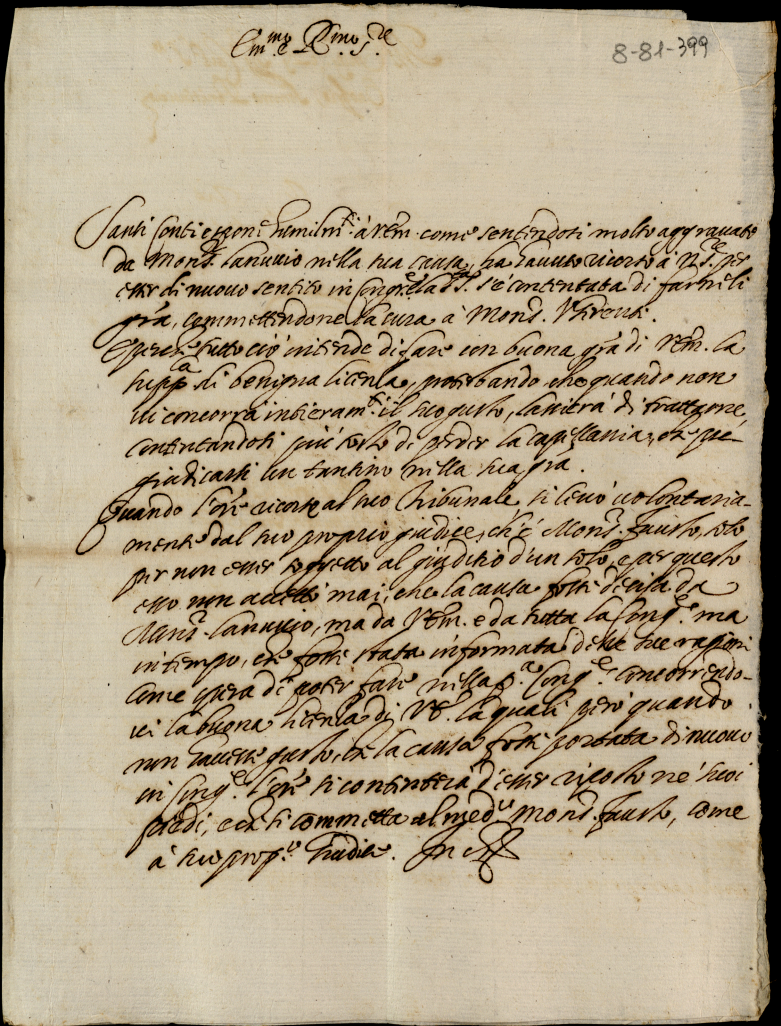 Em.mo e R.mo S.re
8-81-399
Santi Conti espone humilm.te à V.Em. come sentendosi molto aggravato
da Mons.r Lanuvio nella sua causa, ha havuto ricorso à N.S.re per
esser di nuovo sentito in Cong.ne e la S.tà S. s'è contentata di farneli
gr̃a, commettendone la cura à Mons.r
E perche tutto ciò intende di fare con buona gr̃a di V.Em. la
supp.ca di benigna licenza, protestando, che quando non
vi concorra intieram.te il suo gusto, lascierà di trattarne,
contentandosi più tosto di perder la Capellania, che pre-
giudicarsi un tantino nella sua gr̃a.
Quando l'Or̃e ricorse al suo Tribunale, si levò volontaria-
mente dal suo proprio giudice, ch'è Mons.r Fausto, solo
per non esser soggetto al giuditio d'un solo, e per questo
esso non accettò mai, che la causa fosse decisa da
Mons.r Lanuvio, ma da V.Em. e da tutta la Cong.ne ma
in tempo, che fosse stata informata delle sue ragioni
come spera di poter fare nella p.a Cong.ne concorrendo-
vi la buona licenza di V.E. la quale però quando
non havesse gusto, che la causa fosse portata di nuovo
in Cong.ne l'Or̃e si contenterà d'esser riposto ne' suoi
piedi, e che si commetta al med.o Mons.r Fausto, come
à suo prop.o Giudice.